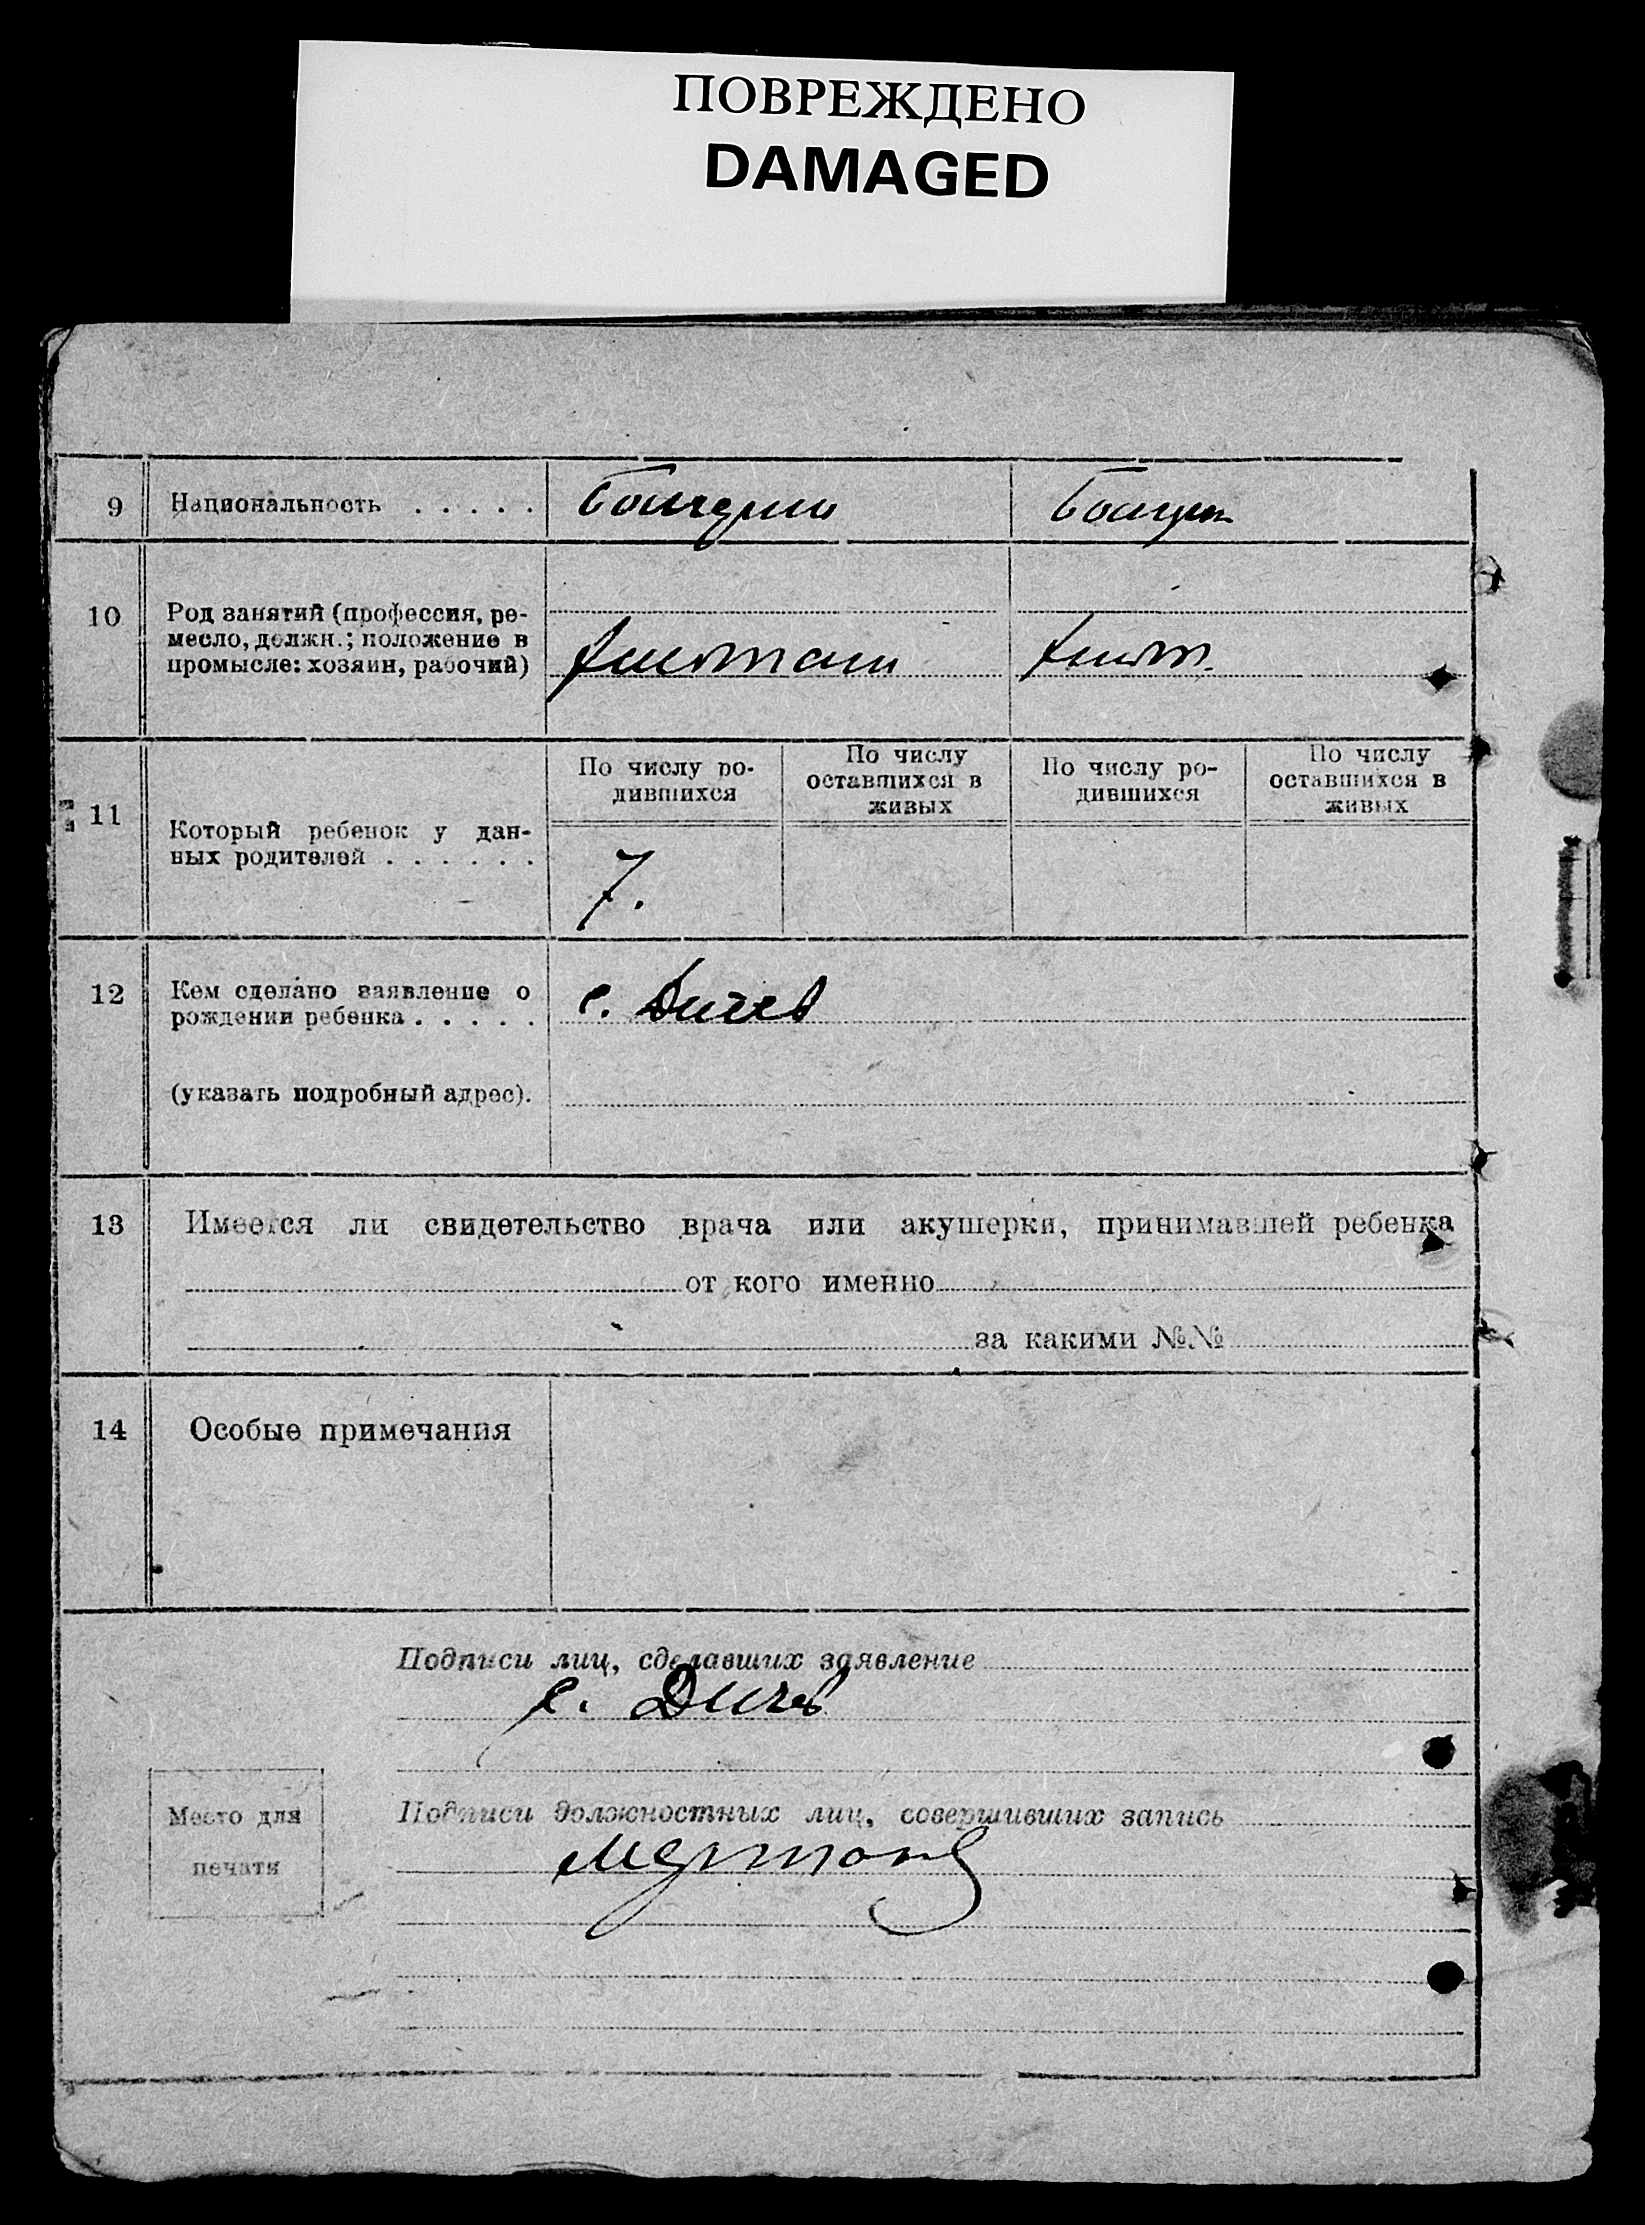 ПОВРЕЖДЕНО
DAMAGED
9 Национальность . . . . .
10 Род занятий (профессия, ре-
месло, должн.; положение в
промысле: хозяин, рабочий)
По числу ро-
дившихся
По числу
оставшихся в
живых
По числу ро-
дившихся
По числу
оставшихся в
живых
11 Который ребенок у дан-
ных родителей . . . . . .
7.
12 Кем сделано заявление о
рождении ребенка . . . . .
с. Дичев
(указать подробный адрес).
13 Имеется ли свидетельство врача или акушерки, принимавшей ребенка
от кого именно
за какими №№
14 Особые примечания
Подписи лиц, сделавших заявление
с. Дичев
Место для
печати
Подписи должностных лиц, совершивших запись